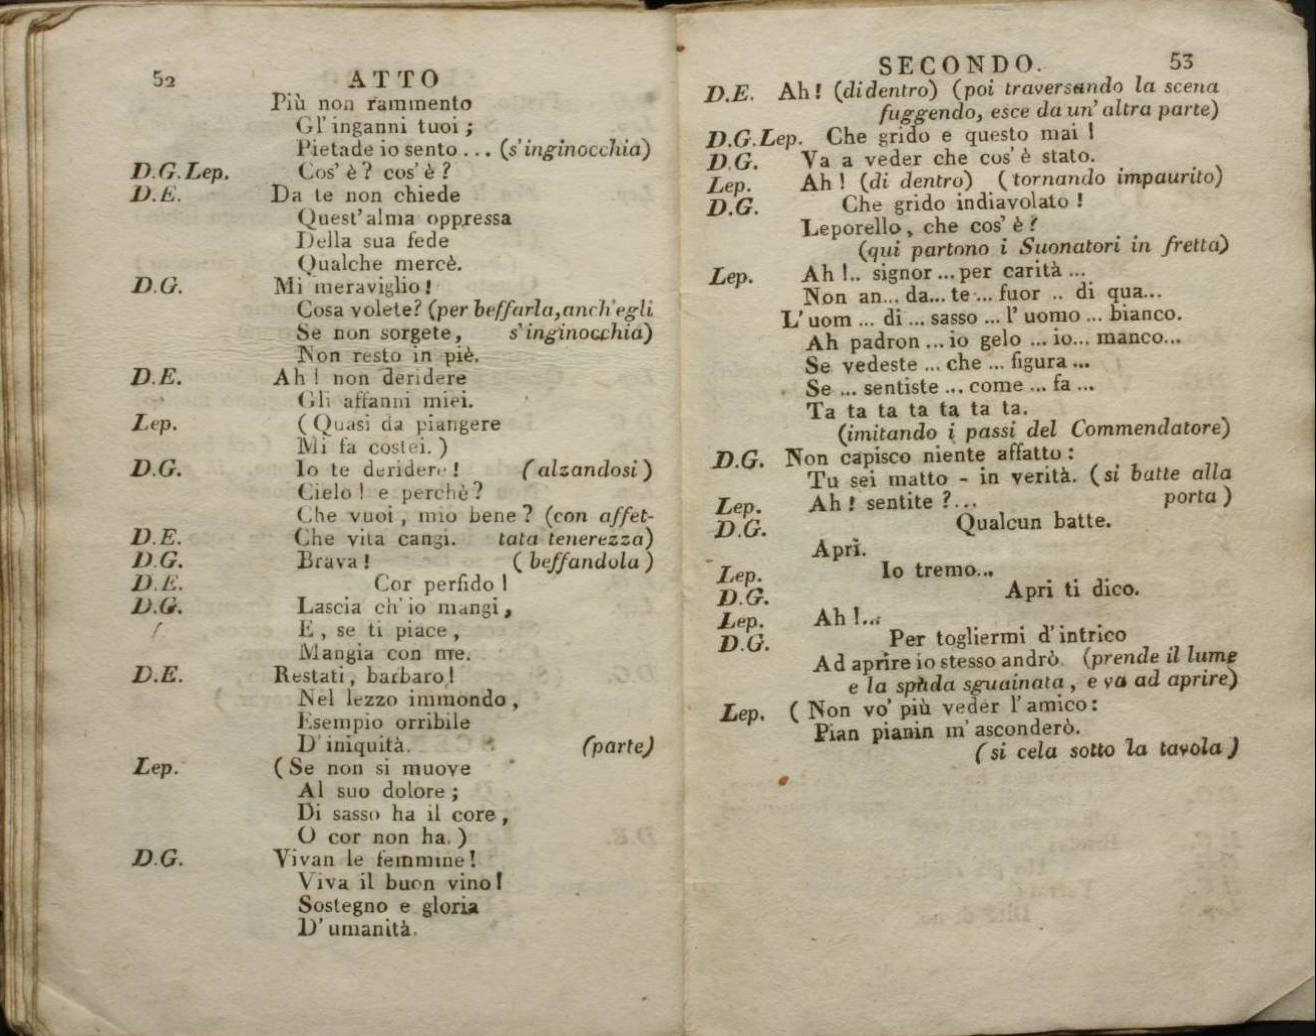 52 ATTO
Più non rammento
Gl' inganni tuoi ;
Pietade io sento ... (s'inginocchia)
D.G.Lep. Cos' è ? cos' è ?
D.E. Da te non chiede
Quest' alma oppressa
Della sua fede
Qualche mercè.
D.G. Mi meraviglio !
Cosa volete? (per beffarla, anch'egli
Se non sorgete, s'inginocchia)
Non resto in piè.
D.E. Ah ! non deridere
Gli affanni miei.
Lep. (Quasi da piangere
Mi fa costei. )
D.G. Io te deridere ! (alzandosi)
Cielo ! e perchè ?
Che vuoi, mio bene ? (con affet-
D.E. Che vita cangi. tata tenerezza)
D.G. Brava ! (beffandola)
D.E. Cor perfido !
D.G. Lascia ch' io mangi,
E, se ti piace,
Mangia con me.
D.E. Restati, barbaro !
Nel lezzo immondo,
Esempio orribile
D' iniquità. (parte)
Lep. (Se non si muove
Al suo dolore ;
Di sasso ha il core,
O cor non ha. )
D.G. Vivan le femmine !
Viva il buon vino !
Sostegno e gloria
D' umanità.
SECONDO. 53
D.E. Ah ! (didentro) (poi traversando la scena
fuggendo, esce da un' altra parte)
D.G.Lep. Che grido e questo mai !
D.G. Va a veder che cos' è stato.
Lep. Ah ! (di dentro) (tornando impaurito)
D.G. Che grido indiavolato !
Leporello, che cos' è ?
(qui partono i Suonatori in fretta)
Lep. Ah !.. signor ... per carità ...
Non an... da... te ... fuor .. di qua...
L' uom ... di ... sasso ... l' uomo ... bianco.
Ah padron ... io gelo ... io... manco...
Se vedeste ... che ... figura ...
Se ... sentiste ... come ... fa ...
Ta ta ta ta ta ta ta.
(imitando i passi del Commendatore)
D.G. Non capisco niente affatto :
Tu sei matto - in verità. (si batte alla
Lep. Ah ! sentite ?... porta )
D.G. Qualcun batte.
Aprì.
Lep. Io tremo...
D.G. Apri ti dico.
Lep. Ah !...
D.G. Per togliermi d' intrico
Ad aprire io stesso andrò. (prende il lume
e la spada sguainata, e va ad aprire)
Lep. ( Non vo' più veder l' amico :
Pian pianin m' asconderò.
(si cela sotto la tavola)